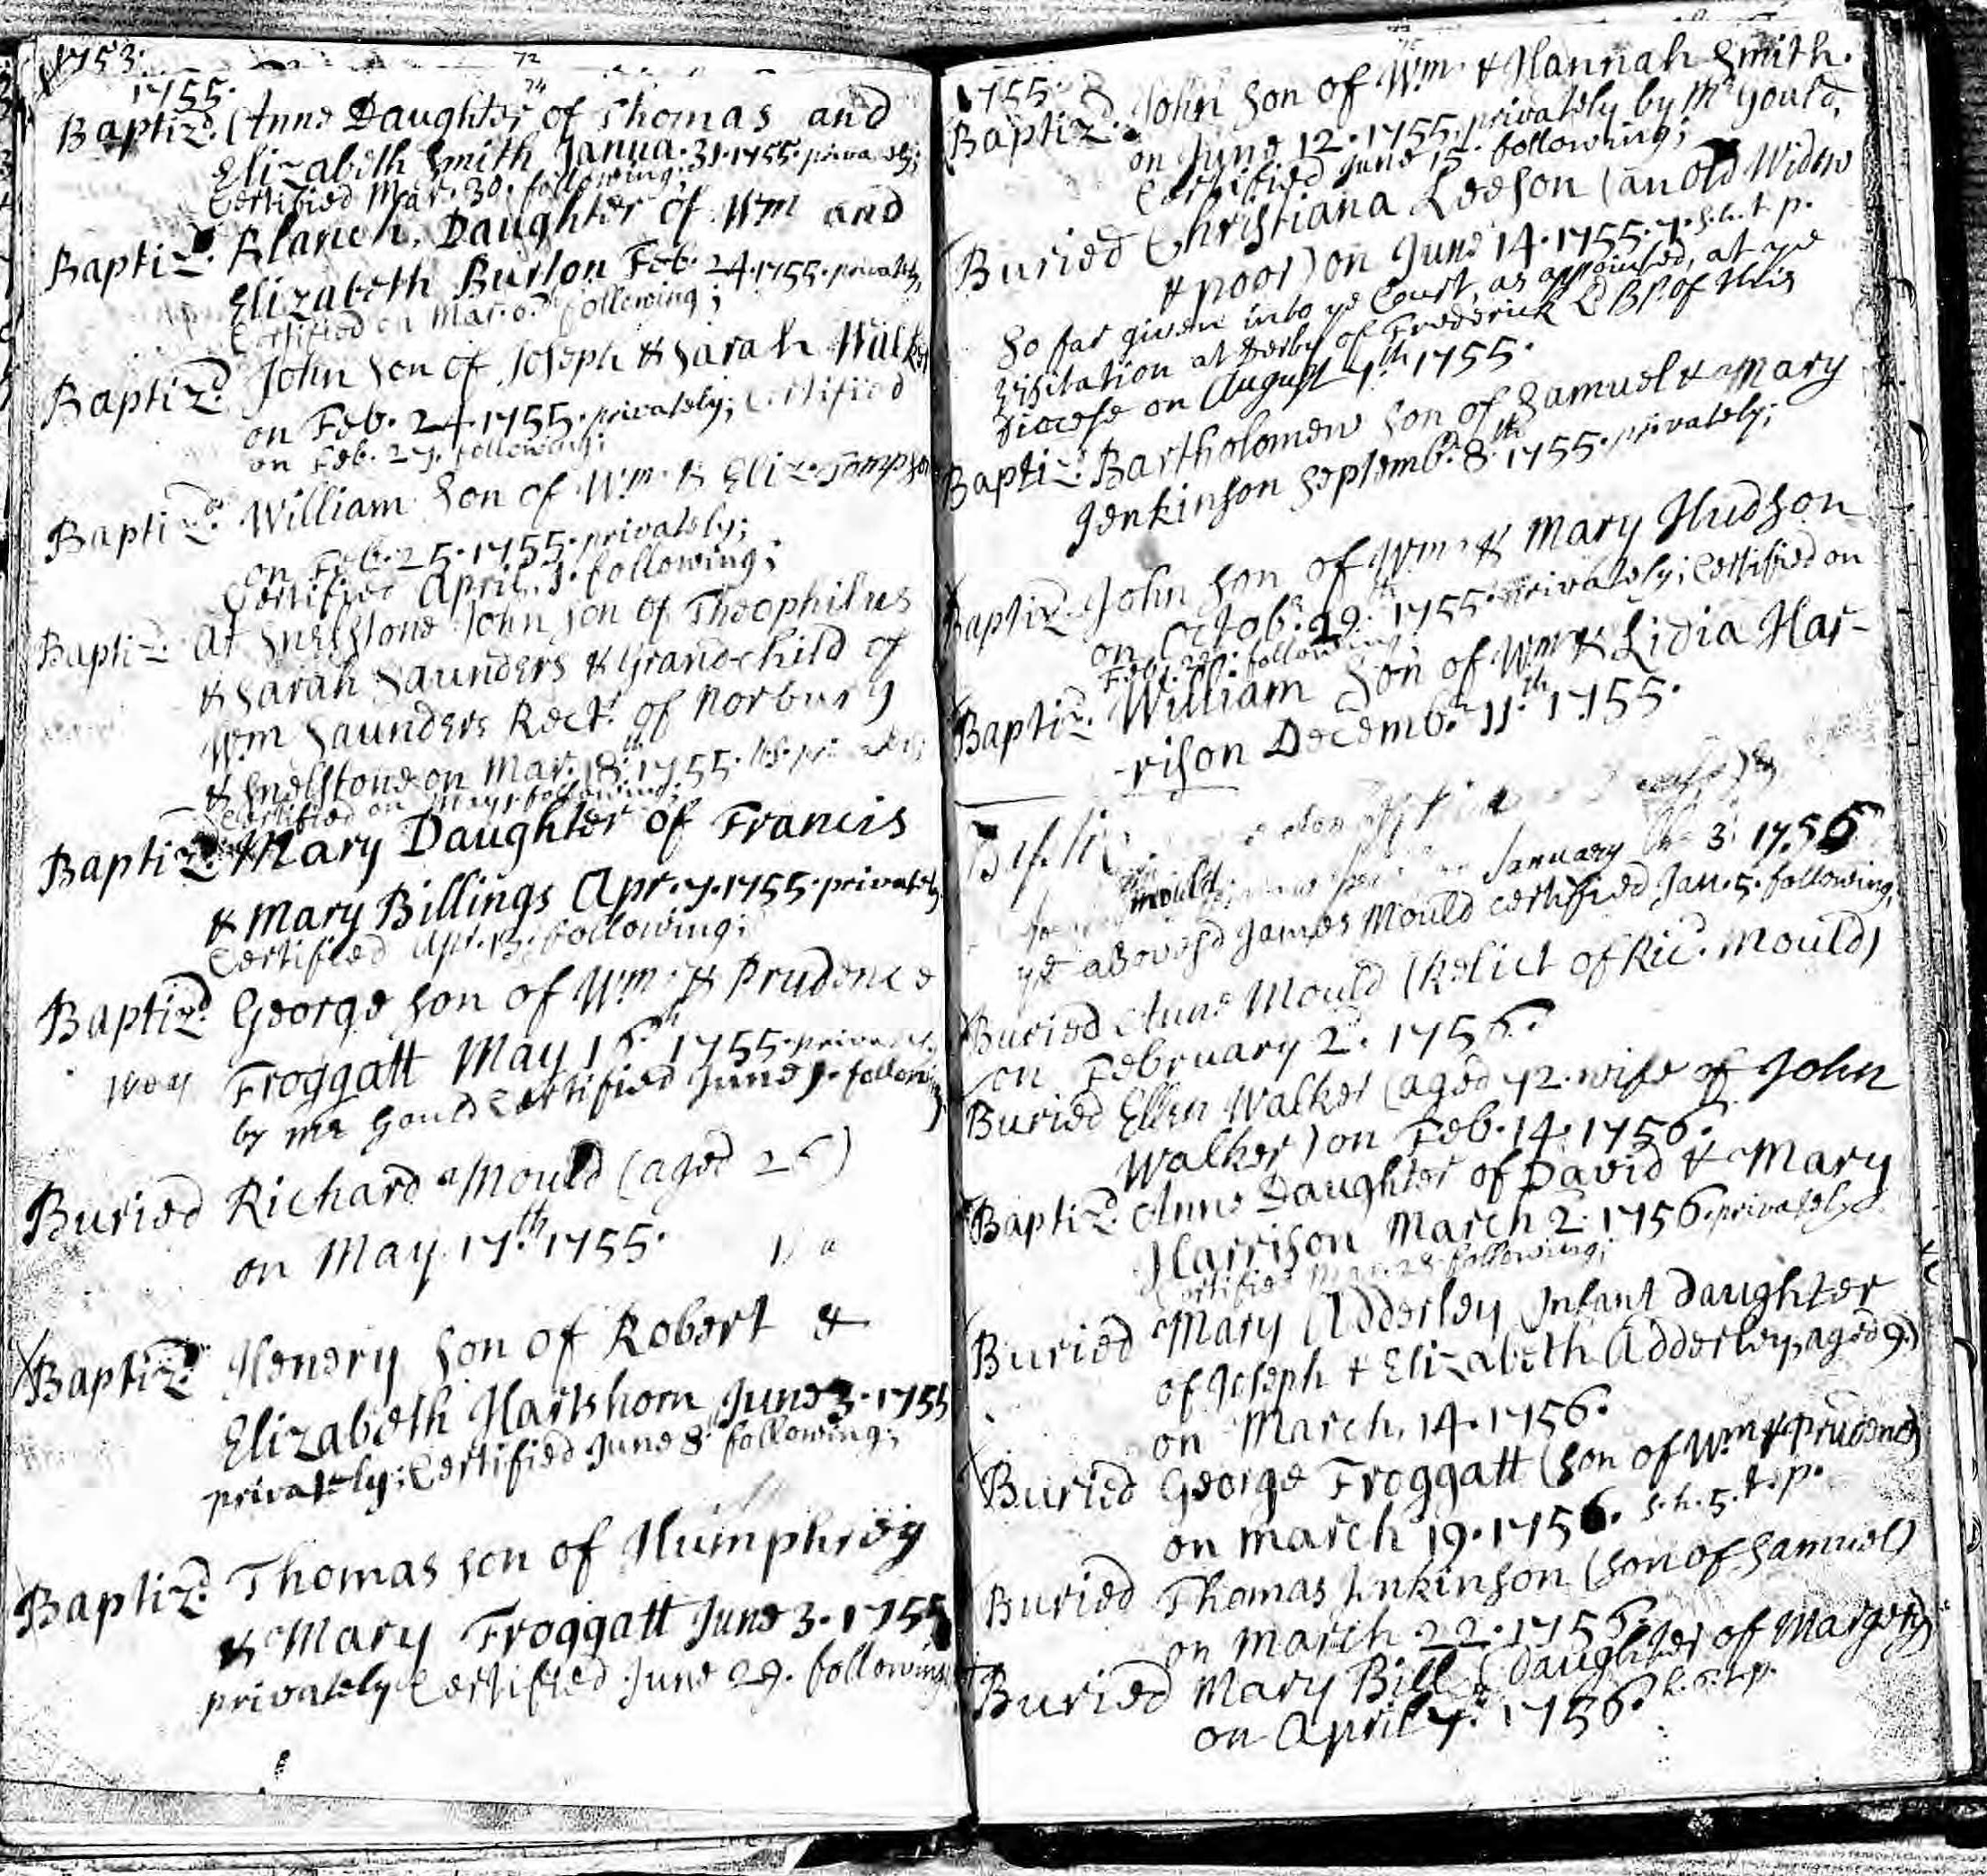 1753.
72
1755.
74
Baptiz.d Anne Daughter of Thomas and
Elizabeth Smith Janua. 31. 1755. privately;
Certified Mar. 30. following;
Baptiz.d Blanch, Daughter of Wm and
Elizabeth Burton Feb. 24. 1755. privately,
Certified on Mar. following;
Baptiz.d John Son of Joseph & Sarah Walker
on Feb. 24. 1755. privately; Certified
on Feb. 27. following;
Baptiz.d William Son of Wm. & Eliz. Tompson
on Feb. 25. 1755. privately;
Certified April. 1. following;
Baptiz. At Snelstone John Son of Theophilus
& Sarah Saunders & Grandchild of
Wm Saunders Rect.r of Norbury
& Snelstone on Mar. 18.th 1755.
Certified on May 1. following;
Baptiz.d Mary Daughter of Francis
& Mary Billings Apr. 7. 1755. privately
Certified Apr. 13. following;
Baptiz.d George Son of Wm. & Prudence
Froggatt May 16.th 1755. privately
by Mr. Gould Certified June 1. following
Buried Richard Mould (aged 26)
on May. 17.th 1755.
Baptiz.d Henery Son of Robert &
Elizabeth Hartshorn June 3. 1755
privately; Certified June 8. following;
Baptiz.d Thomas Son of Humphrey
& Mary Froggatt June 3. 1755
privately Certified June 29. following
1755.
Baptiz.d John Son of Wm. & Hannah Smith.
on June 12. 1755. privately by Mr Gould,
Certified June 15. following;
Buried Christiana Leeson (an old Widow
& poor) on June 14. 1755. t. p.
So far given into ye Court, as appointed, at ye
Visitation at Derby of Frederick Ld Bp. of this
Diocese on August 7th 1755.
Baptiz.d Bartholomew Son of Samuel & Mary
Jenkinson Septemb.r 8.th 1755. privately;
Baptiz.d John Son of Wm. & Mary Hudson
on Octob.r 29.th 1755. privately; Certified on
Feb. 22. following
Baptiz.d William Son of Wm & Lidia Har-
-rison Decemb.r 11.th 1755.
Mould January 3. 1756
ye abovesd James Mould certified Jan. 5. following,
Buried Anne Mould (Relict of Ric.d Mould)
on February 2.d 1756.
Buried Ellen Walker (aged 42. wife of John
Walker) on Feb. 14. 1756.
Baptiz.d Anne Daughter of David & Mary
Harrison March 2. 1756. privately
Certified Mar. 28. following;
Buried Mary Adderley Infant Daughter
of Joseph & Elizabeth Adderley, aged 9.)
on March, 14. 1756.
Buried George Froggatt (Son of Wm & Prudence)
on March 19. 1756. s. h. 5. t. p.
Buried Thomas Inkinson (Son of Samuel)
on March 22. 1756.
Buried Mary Bill (Daughter of Margery)
on April 7. 1756.